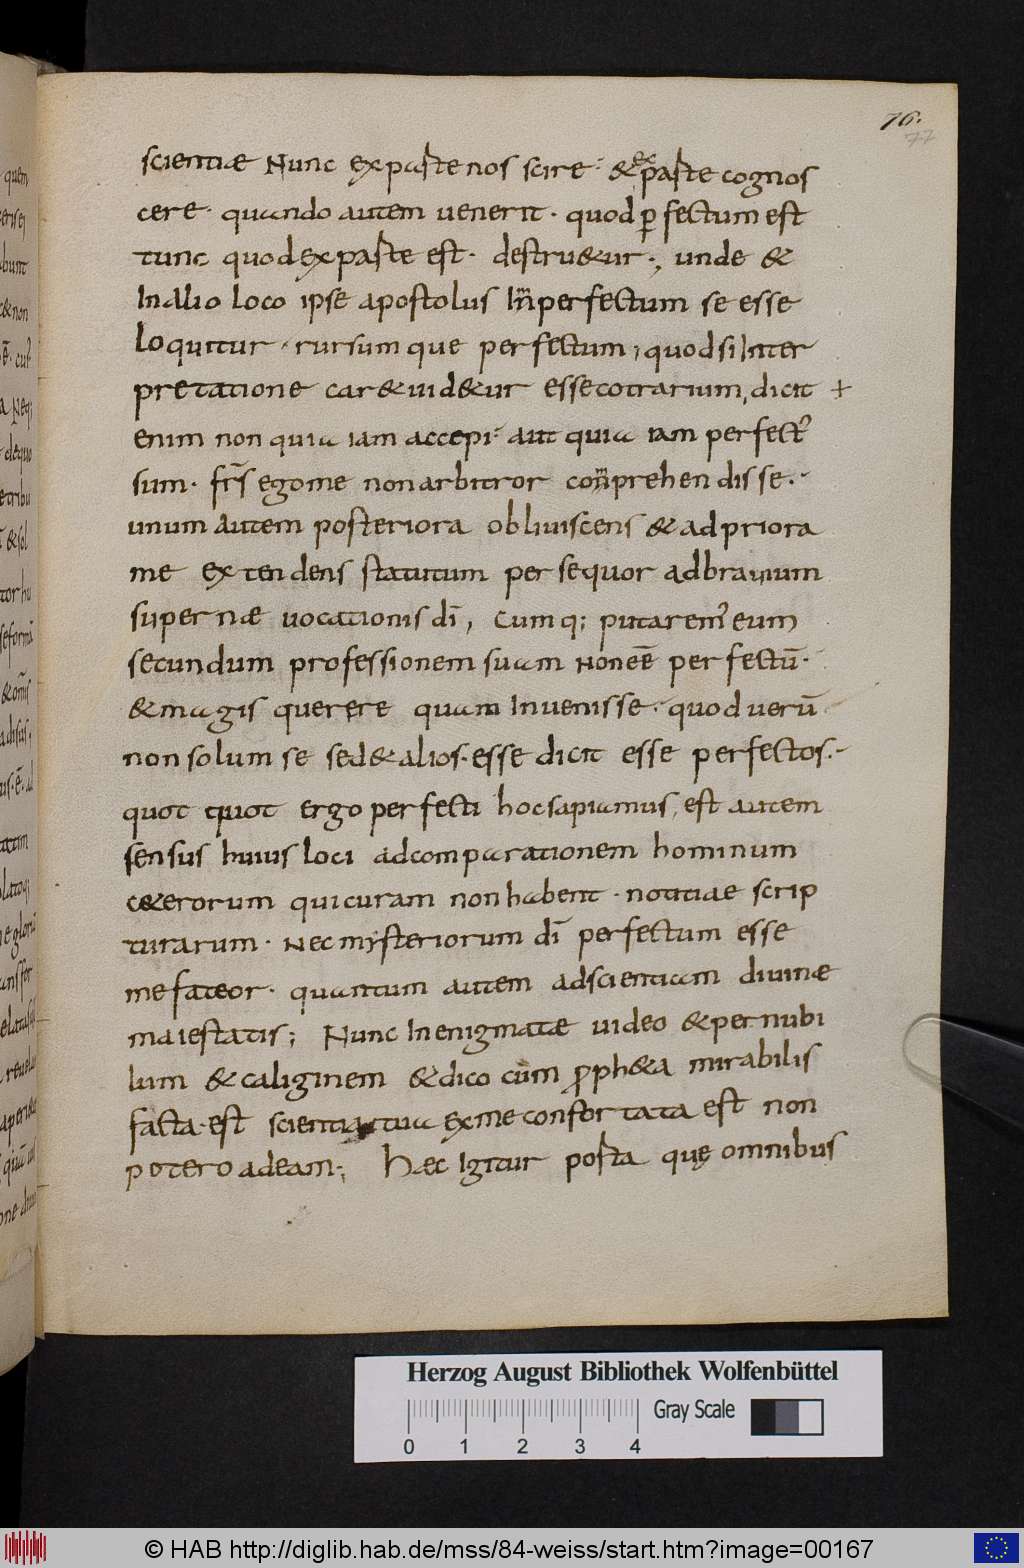 76.
77
scientiae Nunc ex parte nos scire· & ex parte cognos
cere· quando autem uenerit· quod ꝑfectum est
tunc quod ex parte est· destru&ur·, unde &
In alio loco ipse apostolus Inperfectum se esse
Loquitur· rursumque perfectum, quod si Inter
pretatione car& uid&ur esse cotrarium, dicit +
enim non quia iam accepi· aut quia iam perfect᾿
sum· fr̄s ego me non arbitror comprehendisse·
unum autem posteriora obliuiscens & ad priora
me extendens statutum persequor ad brauium
supernae uocationis dī, Cumq; putarem᾿ eum
secundum professionem suam Non eē perfectū·
& magis querere quam Inuenisse· quod uerū
non solum se sed & alios· esse dicit esse perfectos·
quot quot ergo perfecti hoc sapiamus, est autem
sensus huius loci ad comparationem hominum
c&erorum qui curam non habent· notitiae scrip
turarum· Nec mysteriorum dī perfectum esse
me fateor· quantum autem ad scientiam diuinae
maiestatis; Nunc In enigmatae uideo & per nubi
lum & caliginem & dico cum ꝓph&a mirabilis
facta· est scientia tua ex me confortata est non
potero ad eam·, Haec Igitur posta quę omnibus
Herzog August Bibliothek Wolfenbüttel
Gray Scale
0 1 2 3 4
© HAB http://diglib.hab.de/mss/84-weiss/start.htm?image=00167